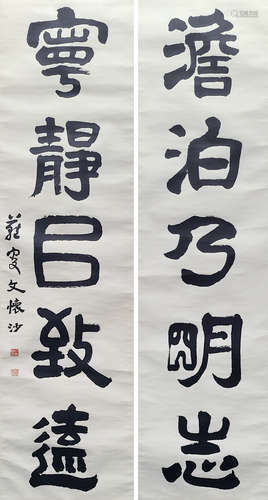 澹泊乃明志
寧靜㠯致遠
文懷沙